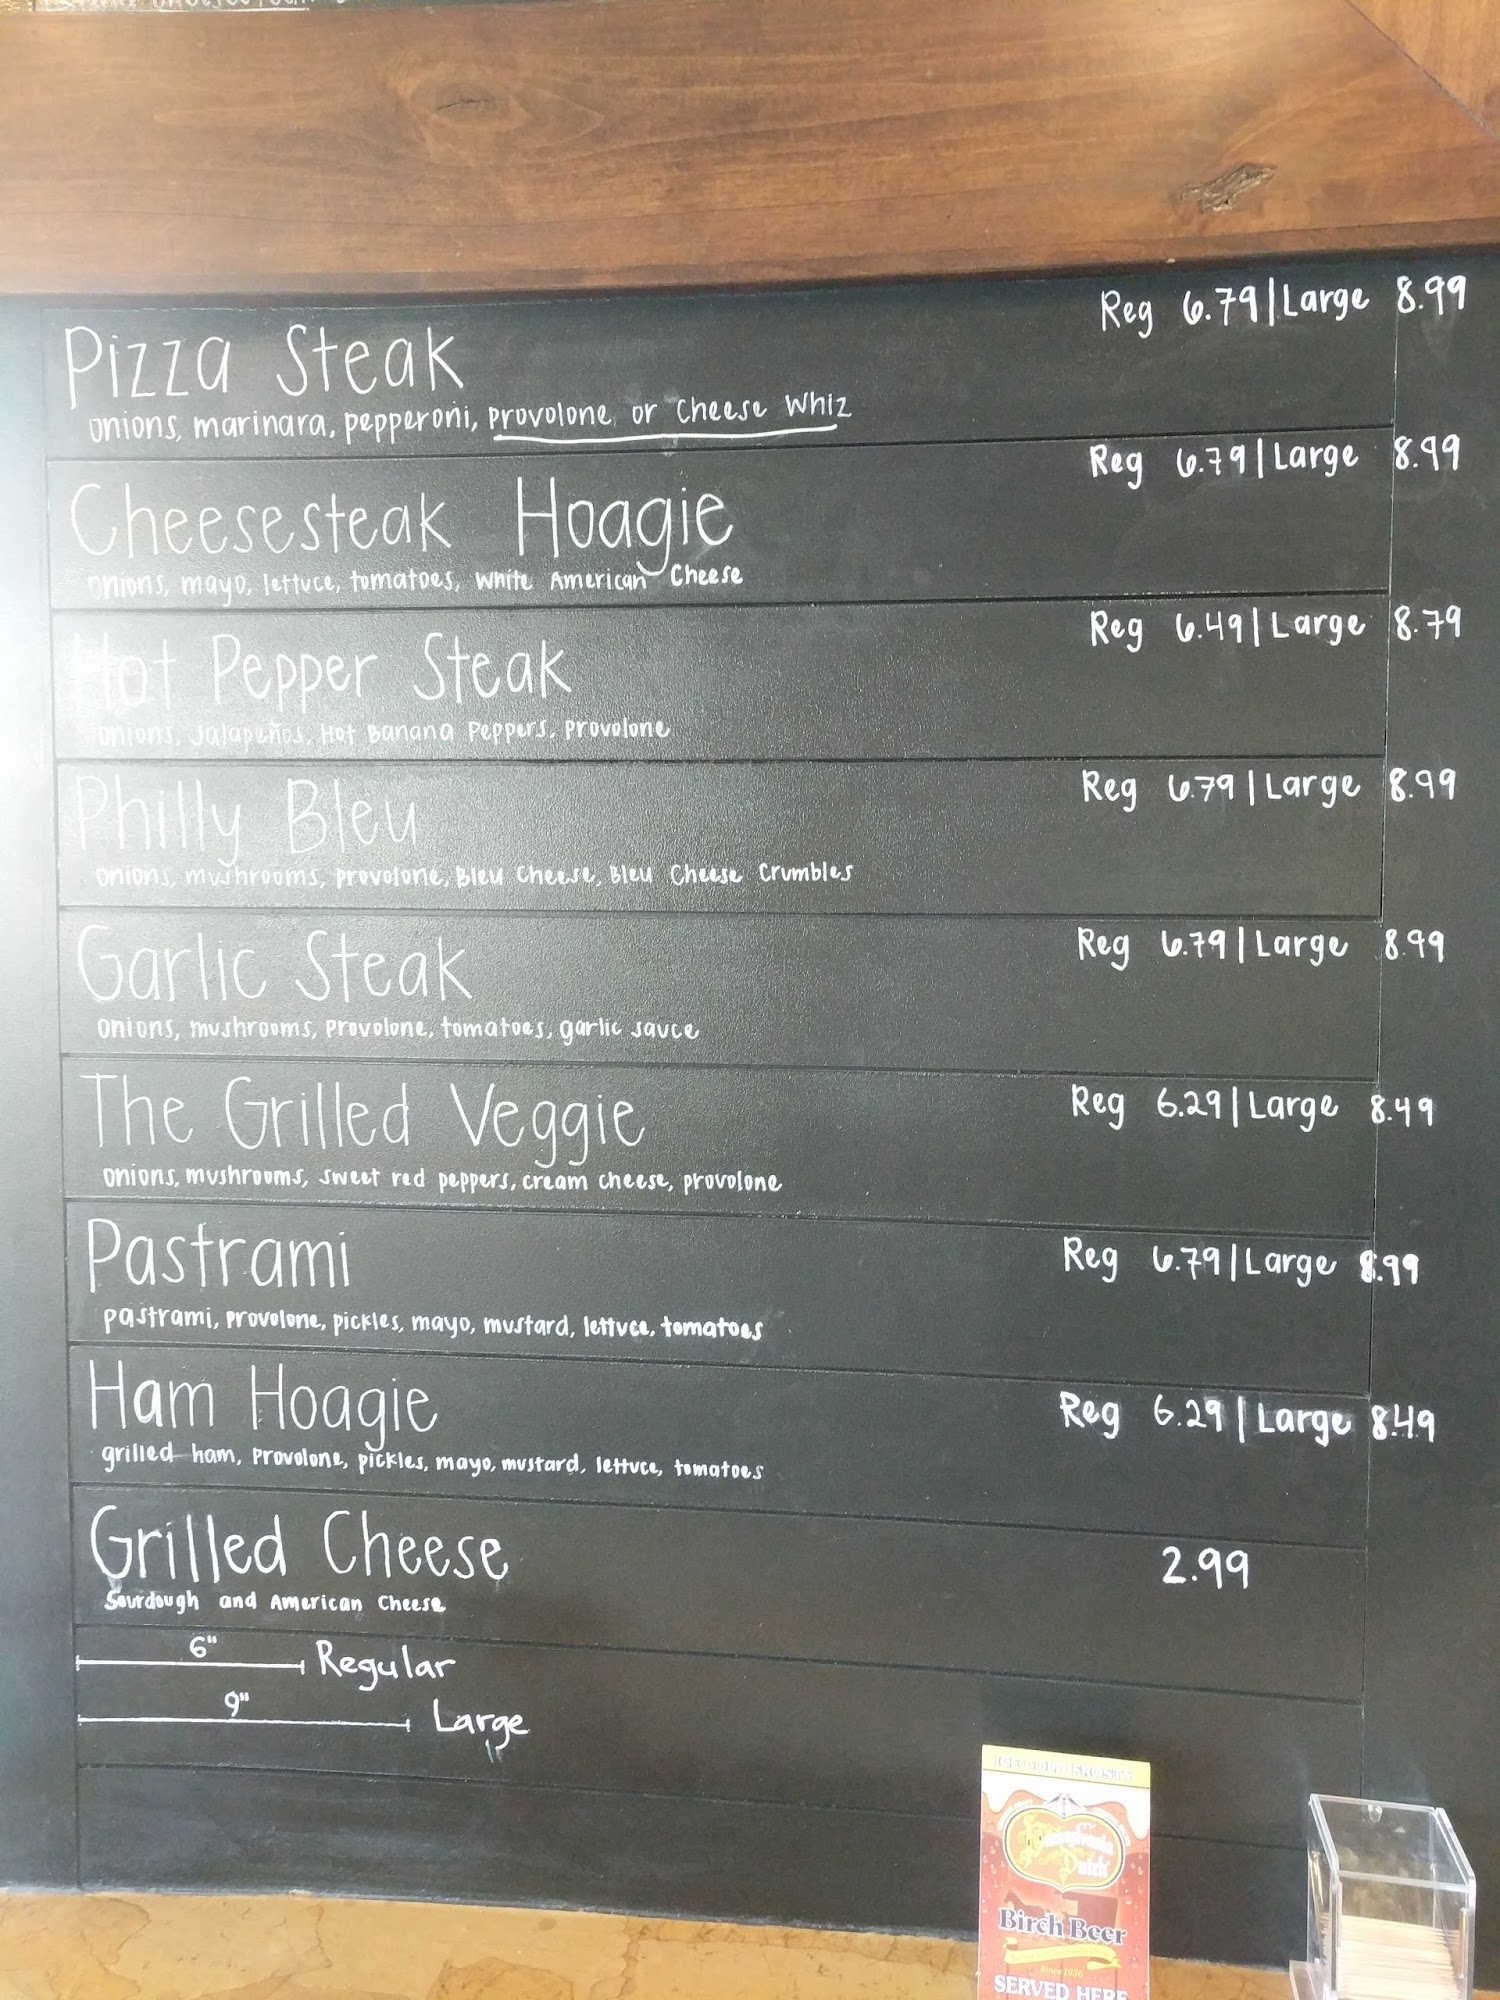 Reg 6.79 | Large 8.99
Pizza Steak
onions, marinara, pepperoni, provolone or Cheese Whiz
Reg 6.79 | Large 8.99
Cheesesteak Hoagie
onions, mayo, lettuce, tomatoes, White American Cheese
Reg 6.49 | Large 8.79
Hot Pepper Steak
onions, Jalapeños, Hot Banana Peppers, Provolone
Reg 6.79 | Large 8.99
Philly Bleu
onions, mushrooms, provolone, Bleu Cheese, Bleu Cheese Crumbles
Reg 6.79 | Large 8.99
Garlic Steak
onions, mushrooms, Provolone, tomatoes, garlic sauce
Reg 6.29 | Large 8.49
The Grilled Veggie
onions, mushrooms, sweet red peppers, cream cheese, provolone
Reg 6.79 | Large 8.99
Pastrami
pastrami, provolone, pickles, mayo, mustard, lettuce, tomatoes
Reg 6.29 | Large 8.49
Ham Hoagie
grilled ham, Provolone, pickles, mayo, mustard, lettuce, tomatoes
Grilled Cheese 2.99
Sourdough and American Cheese
6" Regular
9" Large
ICE COLD FROSTY
Pennsylvania
Dutch
Birch Beer
Since 1936
SERVED HERE